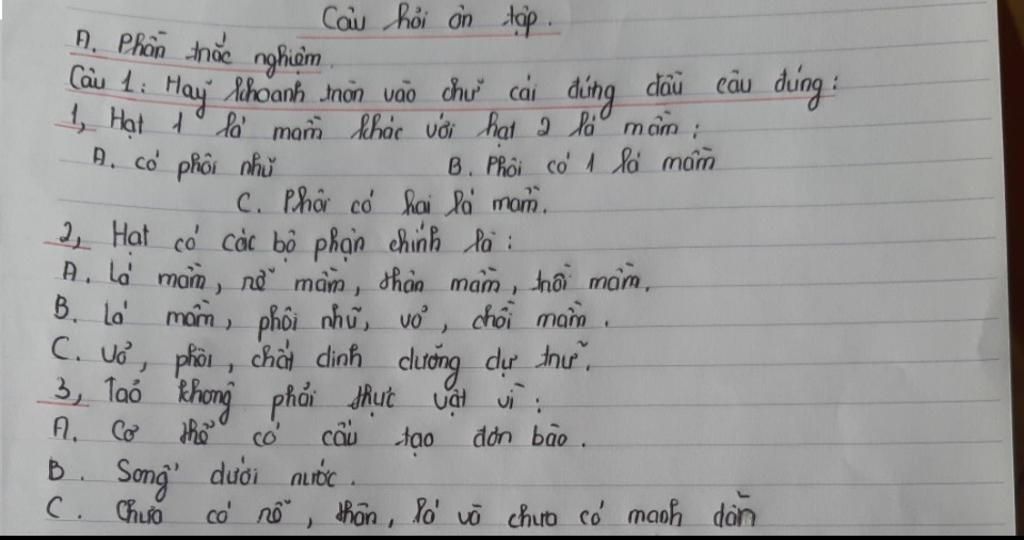 Câu hỏi ôn tập.
A. Phần trắc nghiệm.
Câu 1: Hãy khoanh tròn vào chữ cái đứng đầu câu đúng:
1, Hạt 1 lá mầm khác với hạt 2 lá mầm:
A. có phôi nhũ B. Phôi có 1 lá mầm
C. Phôi có hai lá mầm.
2, Hạt có các bộ phận chính là:
A. Lá mầm, rễ mầm, thân mầm, trồi mầm.
B. Lá mầm, phôi nhũ, vỏ, chồi mầm.
C. Vỏ, phôi, chất dinh dưỡng dự trữ.
3, Tảo không phải thực vật vì:
A. Cơ thể có cấu tạo đơn bào.
B. Sống dưới nước.
C. Chưa có rễ, thân, lá và chưa có mạch dẫn